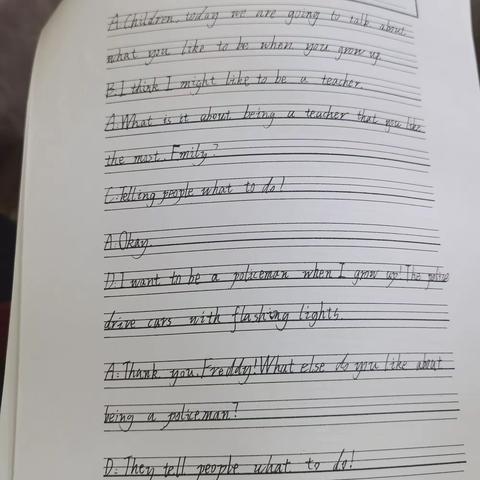 A.Children, today we are going to talk about
what you like to be when you grow up.
B.I think I might like to be a teacher.
A.What is it about being a teacher that you like
the most, Emily?
C.Telling people what to do!
A.Okay.
D.I want to be a policeman when I grow up! The police
drive cars with flashing lights.
A: Thank you, Freddy! What else do you like about
being a policeman?
D: They tell people what to do!